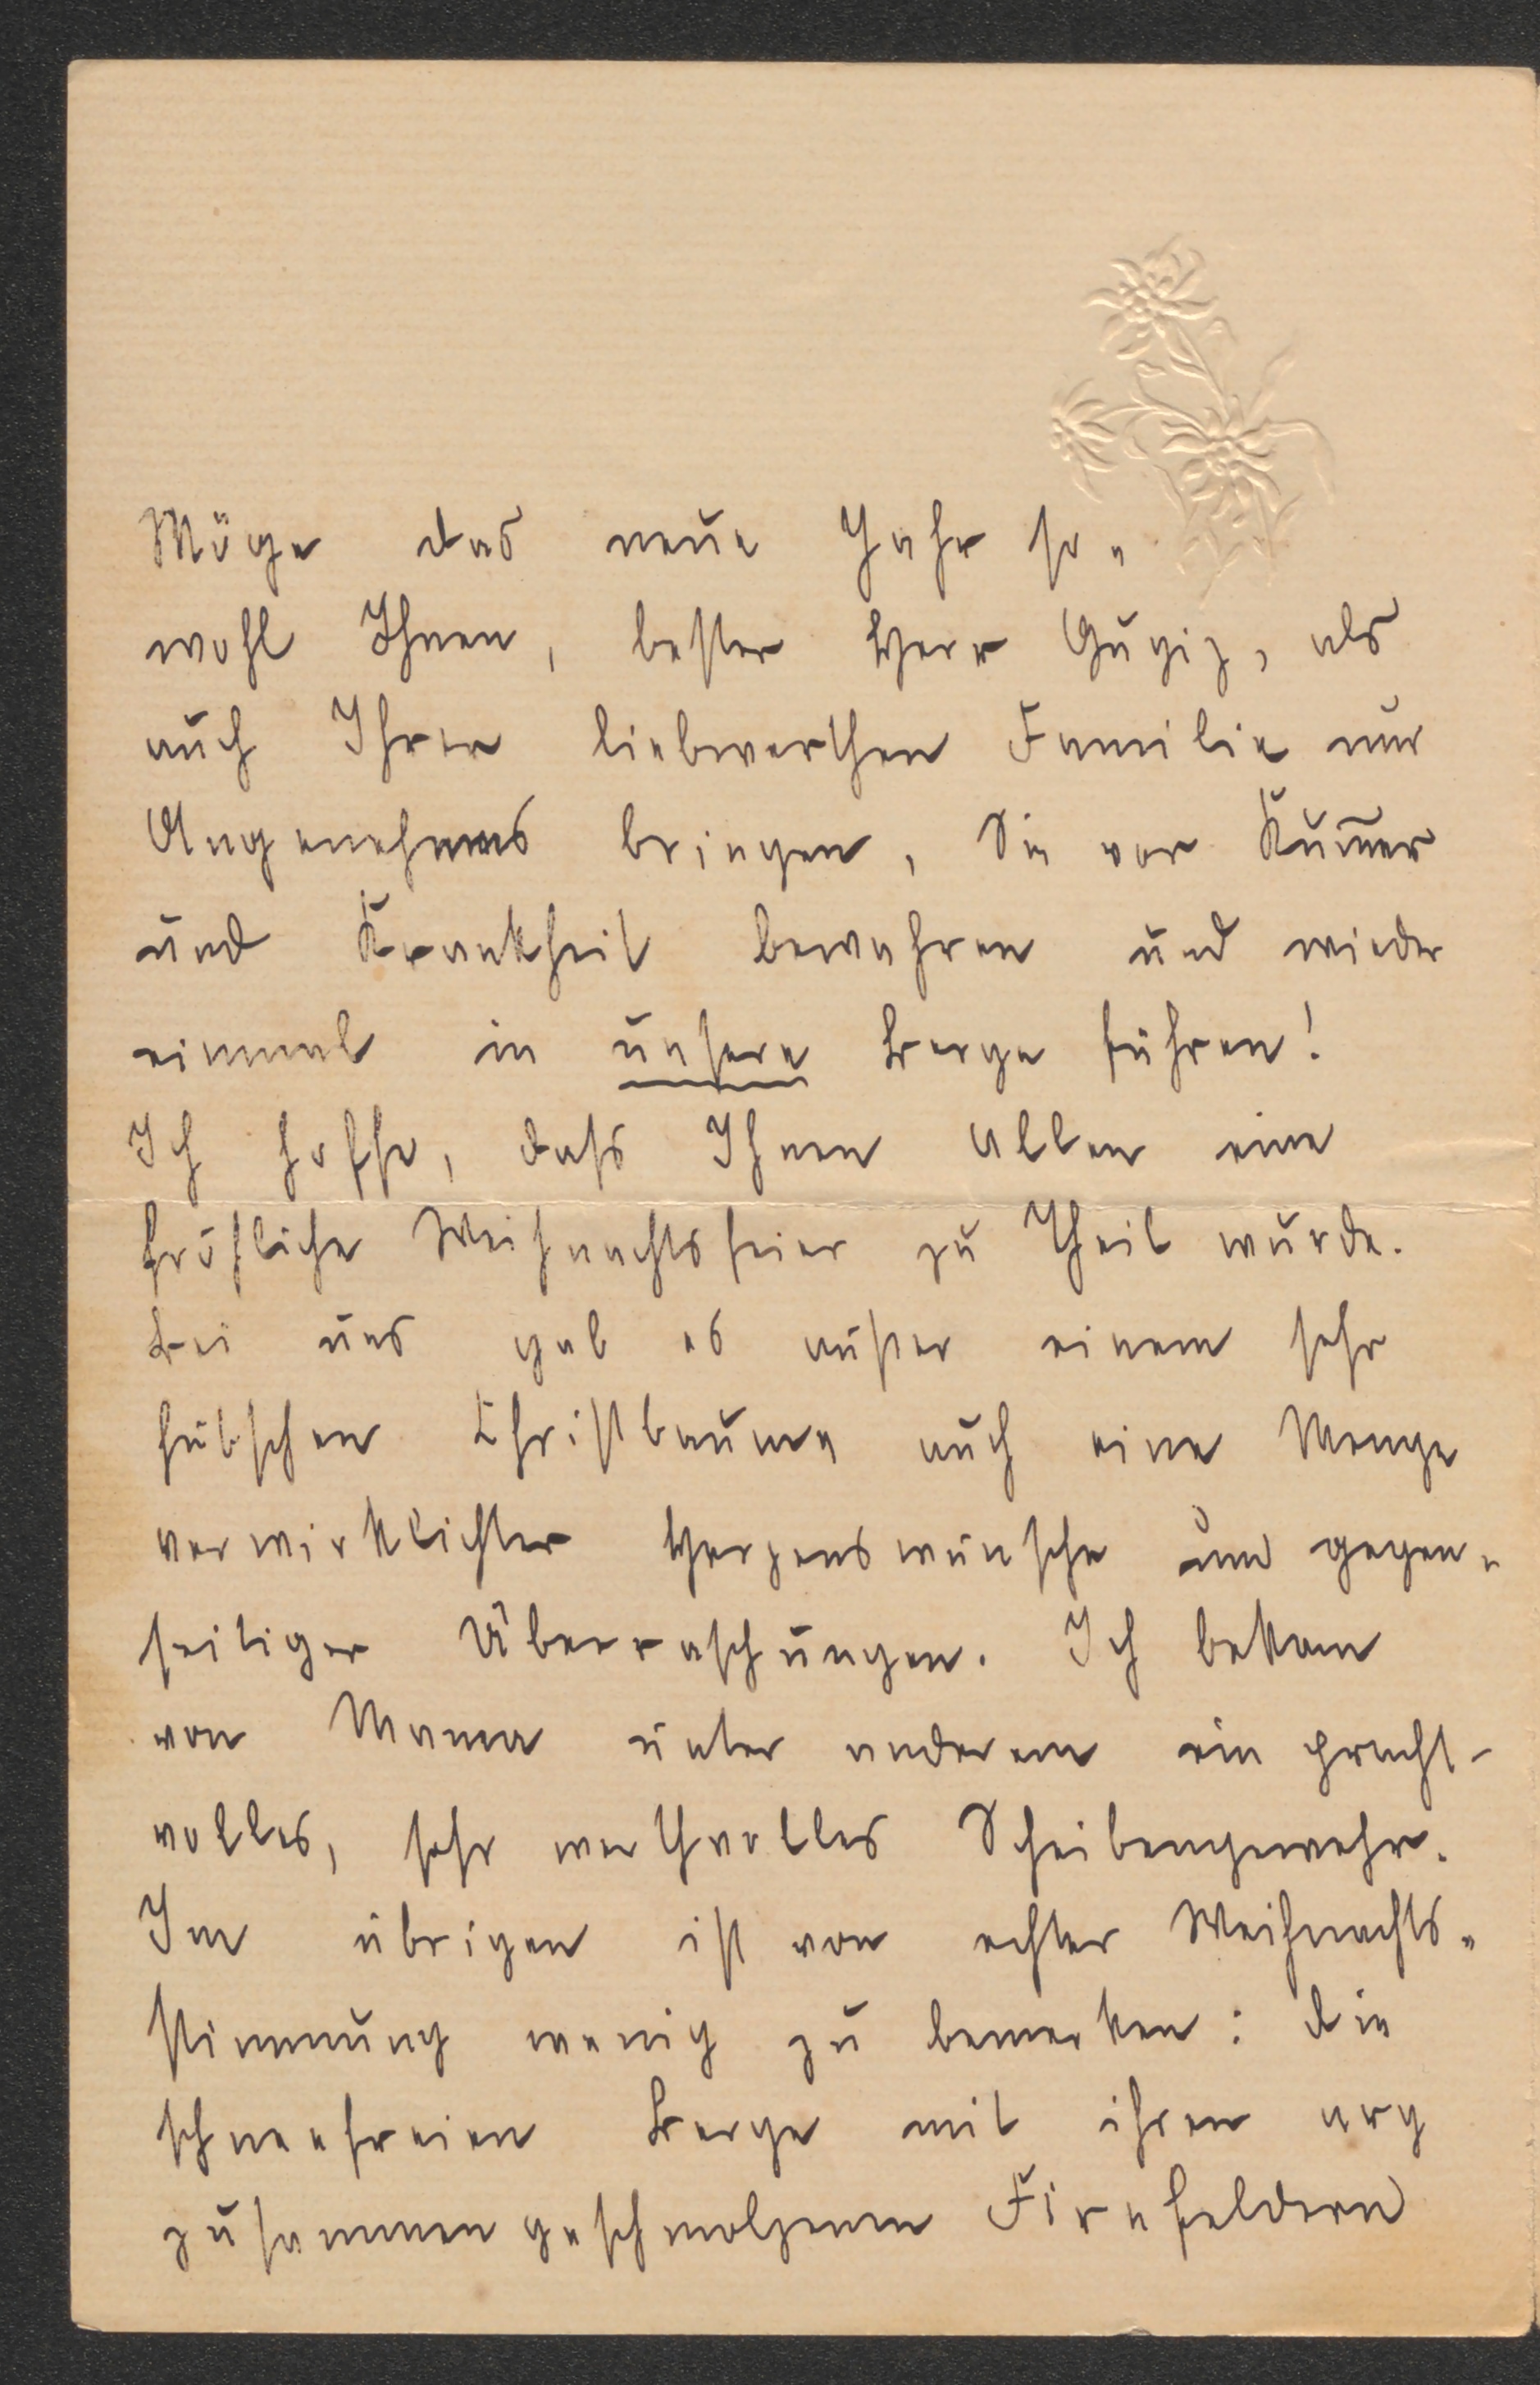 Möge das neue Jahr so=
wohl Ihnen, bester Herr Gugiz, als
auch Ihrer liebwerthen Familie nur
Angenehmes bringen, Sie vor Kum̅er
und Krankheit bewahren und wieder
einmal in unsere Berge führen!
Ich hoffe, dass Ihnen allen eine
fröhliche Weihnachtsfeier zu Theil wurde.
Bei uns gab es außer einem sehr
hübschen Christbaume auch eine Menge
verwirklichter Herzenswünsche und gegen=
seitiger Überraschungen. Ich bekam
von Mama unter anderem ein pracht-
volles, sehr werthvolles Scheibengewehr.
Im übrigen ist von echter Weihnachts=
stimmung wenig zu bemerken: die
schneefreien Berge mit ihren arg
zusammengeschmolzenen Firnfeldern